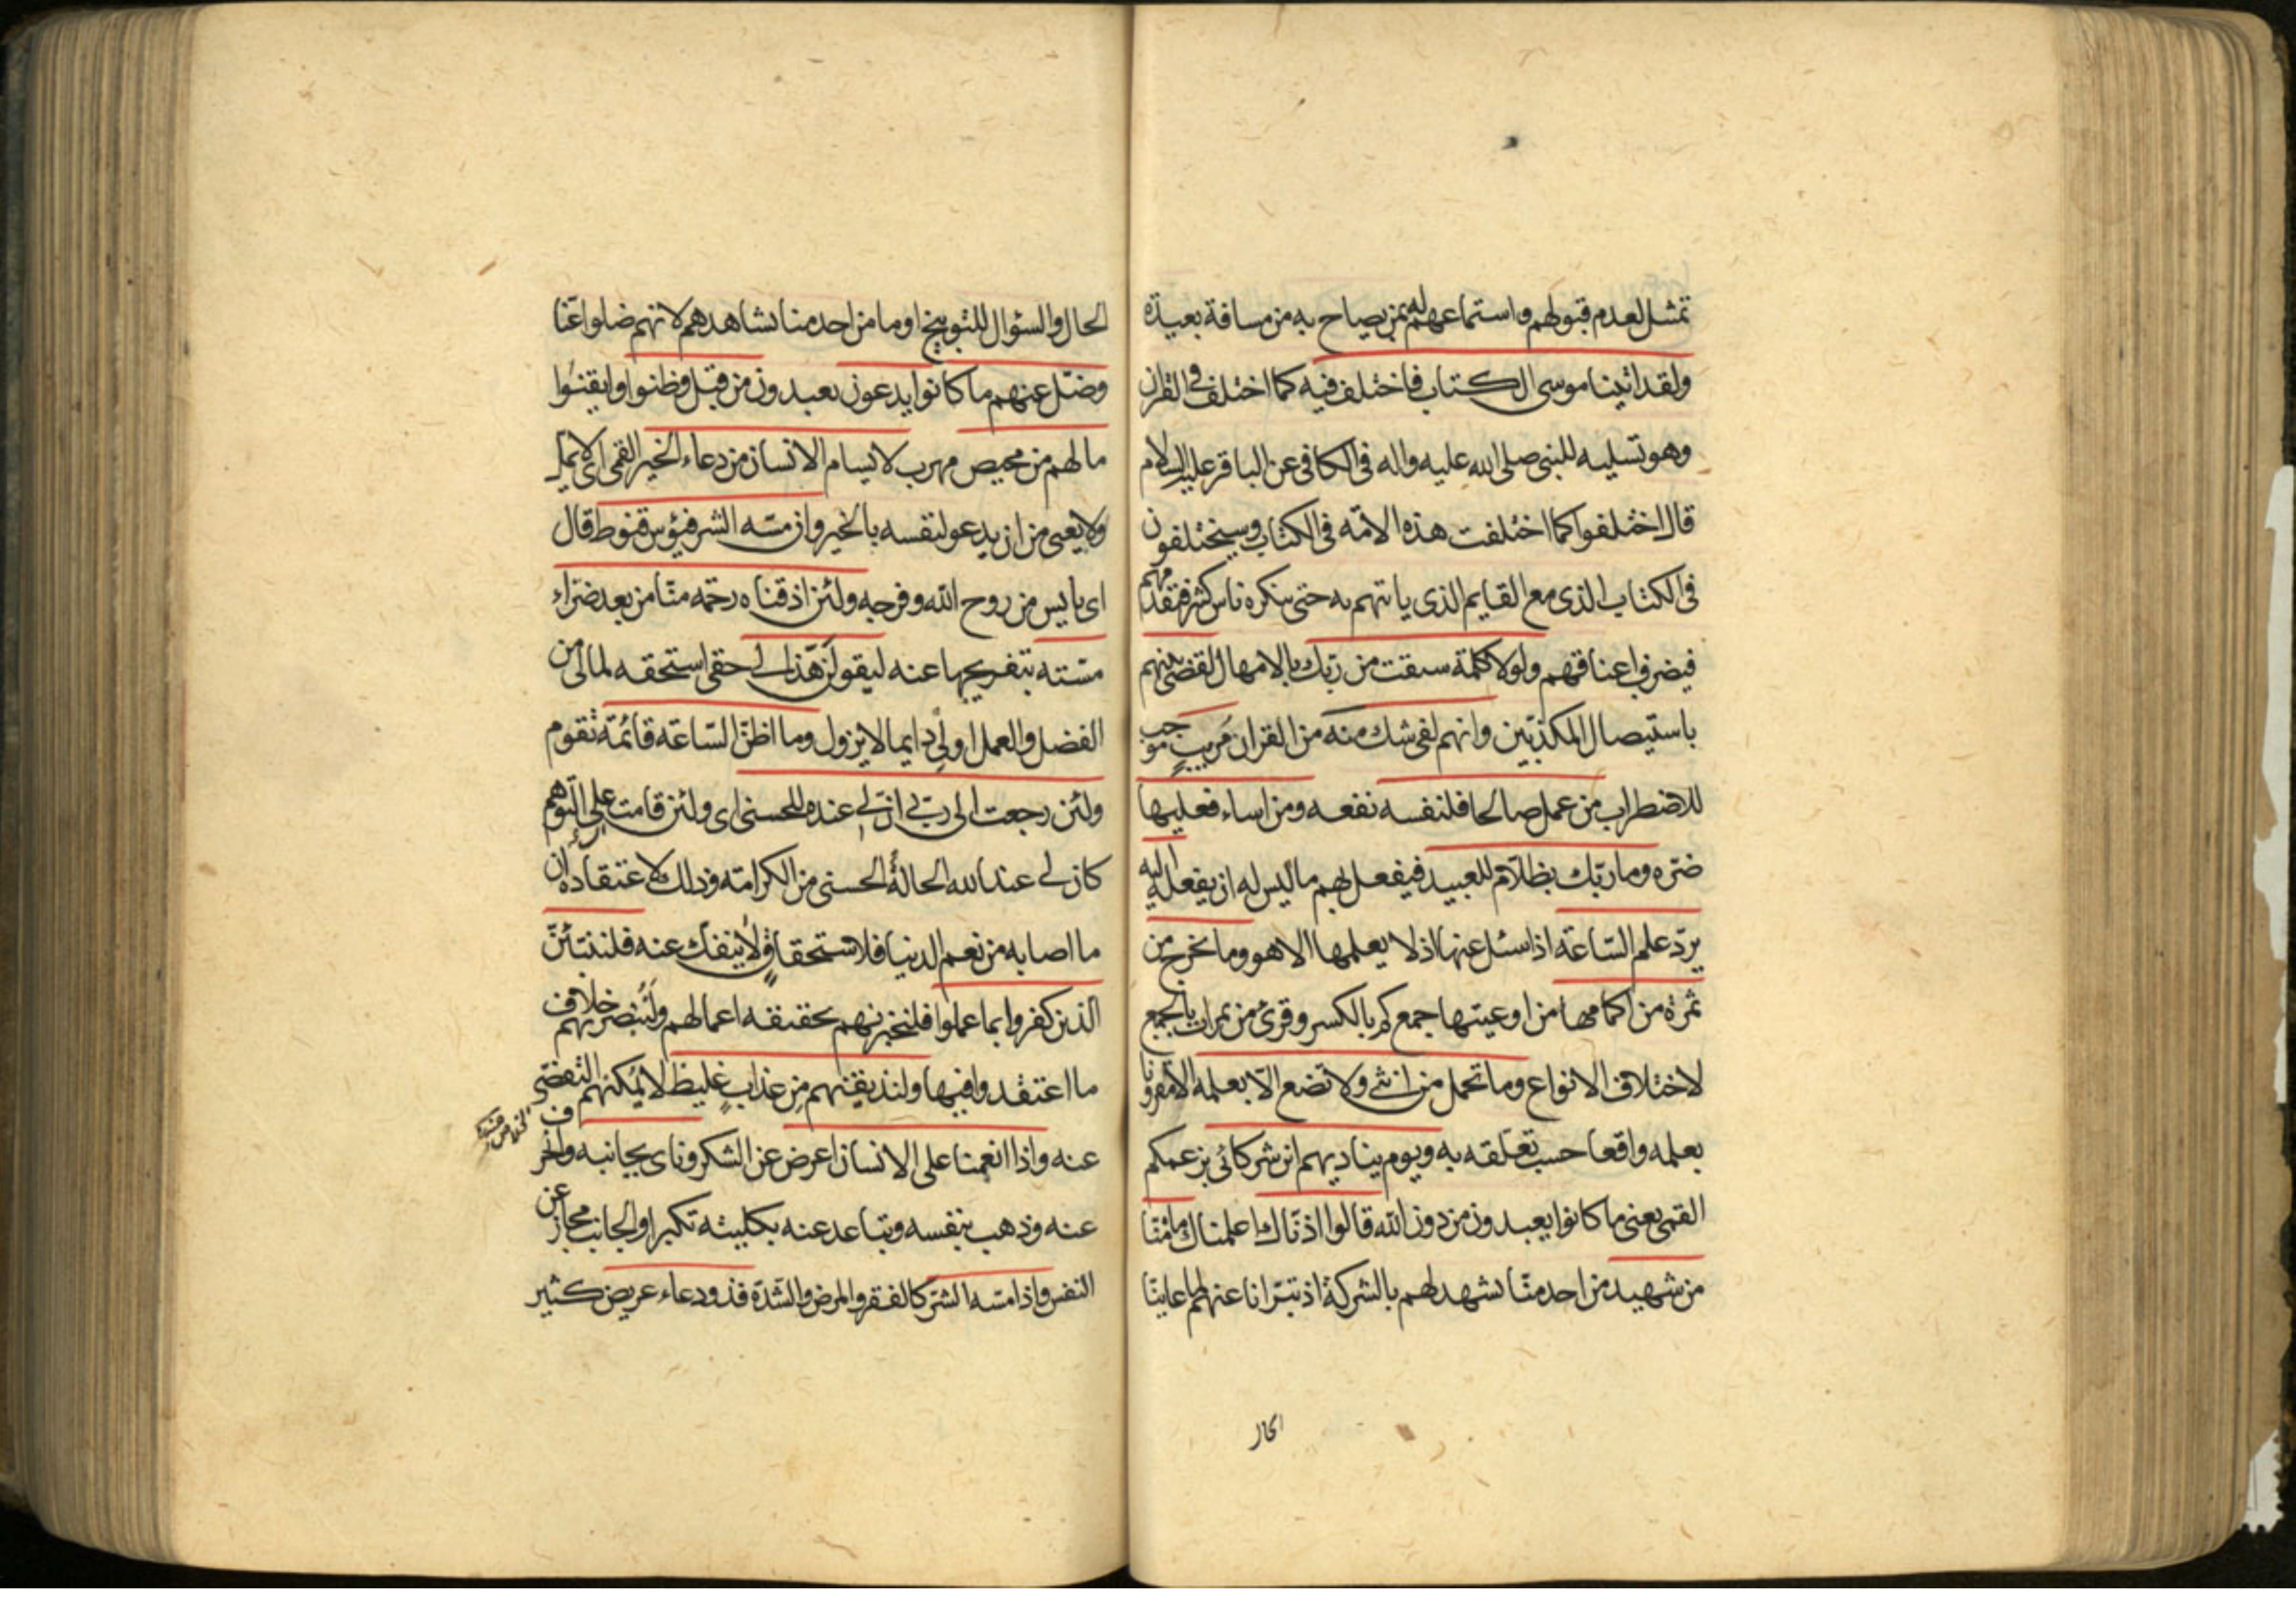 تمثيل لعدم قبولهم واستماعهم له بمن يصاح به من مسافة بعيدة
ولقد اتينا موسى الكتاب فاختلف فيه كما اختلف في القران
وهو تسليه للنبي صلى الله عليه واله في الكافي عن الباقر عليه السلام
قال اختلفوا كما اختلفت هذه الامة في الكتاب وسيختلفون
في الكتاب الذي مع القايم الذي ياتيهم به حتى ينكره ناس كثير فيقدمهم
فيضرب اعناقهم ولولا كلمة سبقت من ربك بالامهال لقضي بينهم
باستيصال المكذبين وانهم لفي شك منه من القران مريب موجب
للاضطراب من عمل صالحا فلنفسه نفعه ومن اساء فعليها
ضره وما ربك بظلام للعبيد فيفعل بهم ما ليس له ان يفعله اليه
يرد علم الساعة اذا سئل عنها اذ لا يعلمها الا هو وما تخرج من
ثمرة من اكمامها من اوعيتها جمع كم بالكسر وقرئ من ثمرات بالجمع
لاختلاف الانواع وما تحمل من انثى ولا تضع الا بعلمه الا مقرونا
بعلمه واقعا حسب تعلقه به ويوم يناديهم اين شركائي بزعمكم
القمي يعني ما كانوا يعبدون من دون الله قالوا اذناك اعلمناك ما منا
من شهيد من احد منا يشهد لهم بالشركة اذ تبرانا عنهم لما عاينا
الحال
الحال والسؤال للتوبيخ او ما من احد منا يشاهدهم لانهم ضلوا عنا
وضل عنهم ما كانوا يدعون يعبدون من قبل وظنوا وايقنوا
ما لهم من محيص مهرب لا يسام الانسان من دعاء الخير القمي اي لا يمل
ولا يعيى من ان يدعو لنفسه بالخير وان مسه الشر فيؤس قنوط قال
اي يايس من روح الله وفرجه ولئن اذقناه رحمة منا من بعد ضراء
مسته بتفريجها عنه ليقولن هذا لي حقي استحقه لمالي من
الفضل والعمل او لي دايما لا يزول وما اظن الساعة قائمة تقوم
ولئن رجعت الى ربي ان لي عنده للحسنى اي ولئن قامت على التوهم
كان لي عند الله الحالة الحسنى من الكرامة وذلك لاعتقاده ان
ما اصابه من نعم الدنيا فلاستحقاق لا ينفك عنه فلننبئن
الذين كفروا بما عملوا فلنخبرنهم بحقيقة اعمالهم ولنبصرنهم خلاف
ما اعتقدوا فيها ولنذيقنهم من عذاب غليظ لا يمكنهم التفصي
عنه واذا انعمنا على الانسان اعرض عن الشكر وناى بجانبه وانحرف
عنه وذهب بنفسه وتباعد عنه بكليته تكبرا والجانب مجاز عن
النفس واذا مسه الشر كالفقر والمرض والشدة فذو دعاء عريض كثير